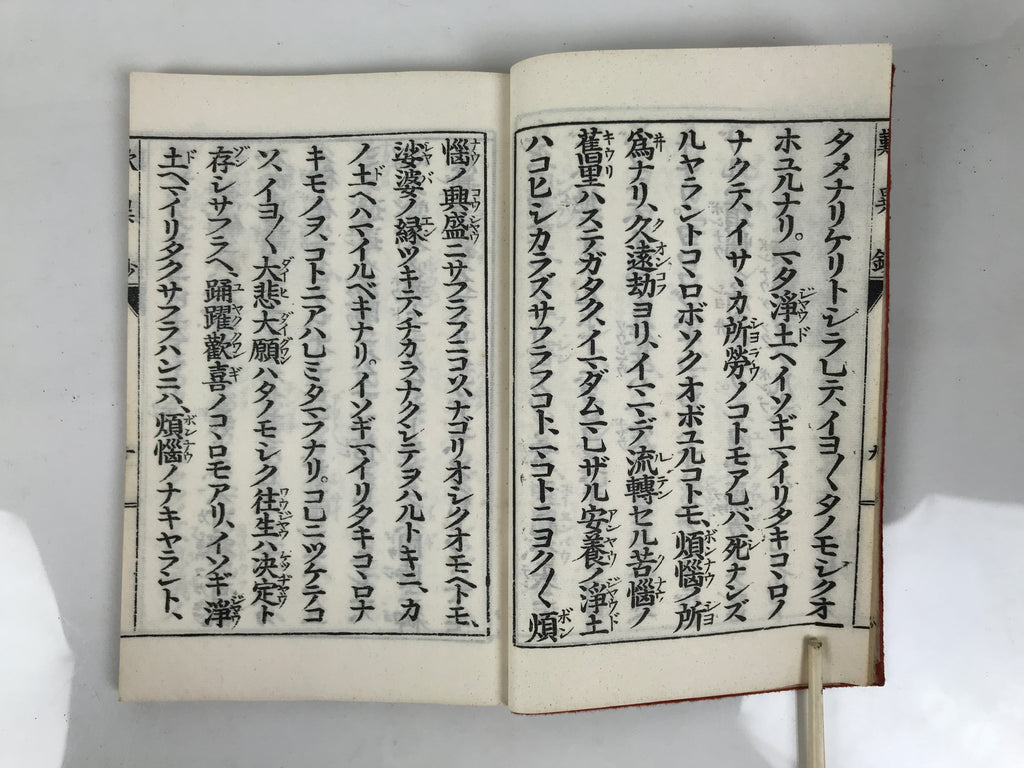 タメナリケリトシラレテ、イヨ〱タノモシクオ
ホユルナリ。マタ淨土ヘイソギマイリタキコヽロノ
ナクテ、イサヽカ所勞ノコトモアレバ、死ナンズ
ルヤラントコヽロボソクオボユルコトモ、煩惱ノ所
爲ナリ、久遠劫ヨリ、イマヽデ流轉セル苦惱ノ
舊里ハステガタク、イマダムマレザル安養ノ淨土
ハコヒシカラズサフラフコト、マコトニヨク〱煩
惱ノ興盛ニサフラフニコソ、ナゴリオシクオモヘトモ、
娑婆ノ縁ツキテ、チカラナクシテヲハルトキニ、カ
ノ土ヘハマイルベキナリ。イソギマイリタキコヽロナ
キモノヲ、コトニアハレミタマフナリ。コレニツケテコ
ソ、イヨ〱大悲大願ハタノモシク往生ハ决定ト
存シサフラヘ、踊躍歡喜ノコヽロモアリ、イソギ淨
土ヘマイリタクサフラハンニハ、煩惱ノナキヤラント、